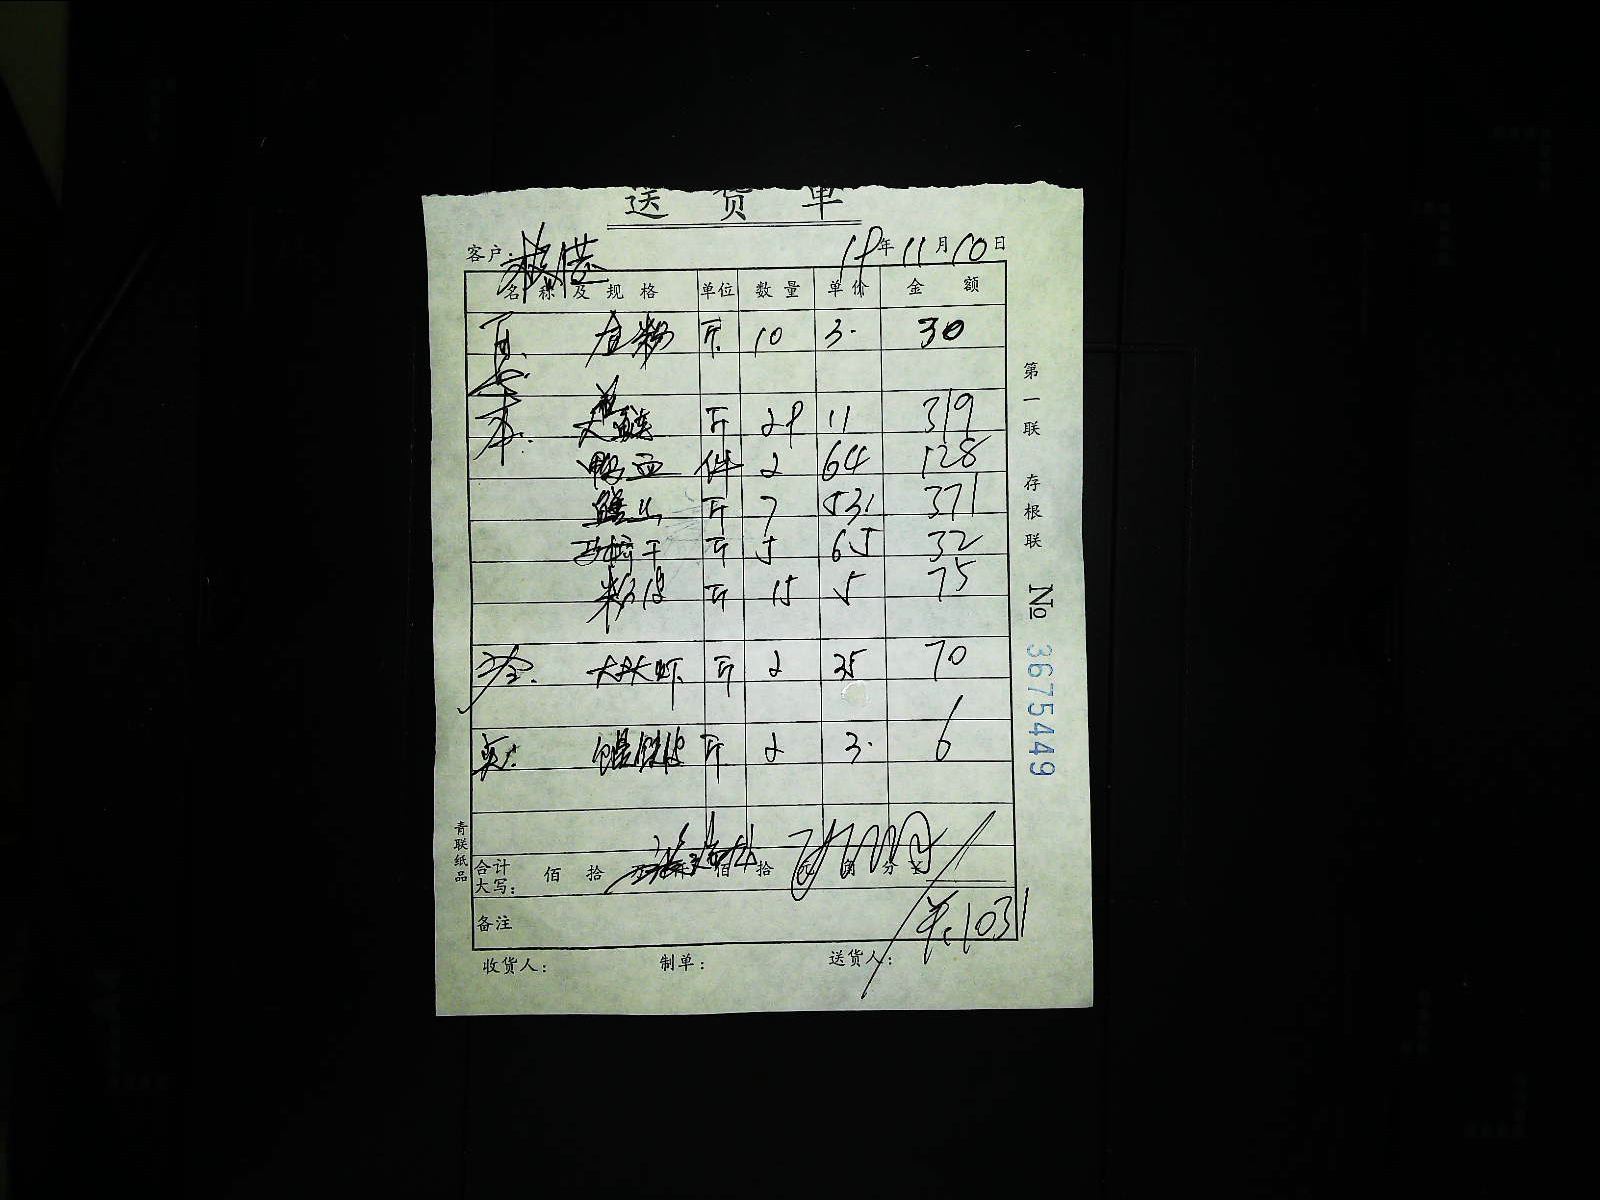 送 货 单
客户: 19年11月10日
名称及规格 单位 数量 单价 金额
斤 10 3. 30
斤 29 11 319
鸭血 件 2 64 128
斤 7 53 371
斤 5 65 32
粉皮 斤 15 5 75
大头虾 斤 2 35 70
斤 2 3. 6
合计
大写: 佰 拾 佰 拾 元 角 分 ¥
¥:1031
备注
收货人: 制单: 送货人:
第一联 存根联 № 3675449
青联纸品